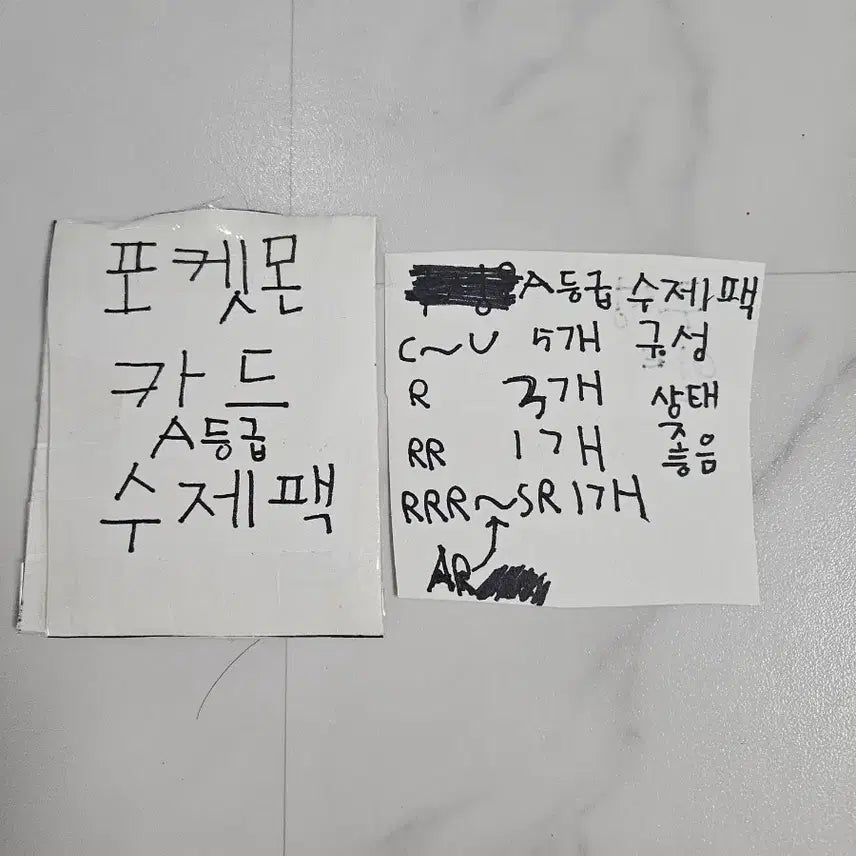 포켓몬
카드
A등급
수제팩
A등급 수제팩
C~U 5개 구성
R 3개 상태
RR 1개 좋음
RRR~SR 1개
AR